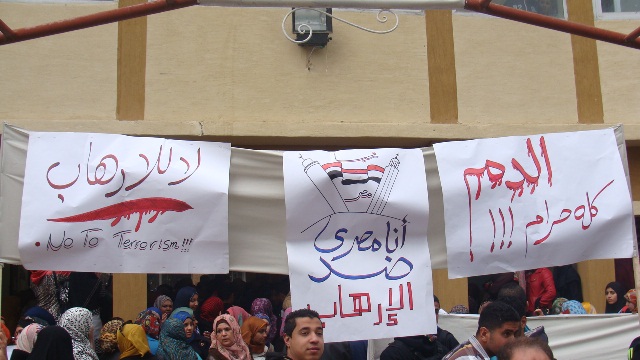 لا للارهاب
No To Terrorism!!!
مصر
أنا مصرى
ضد
الإرهاب
الدم
كله حرام !!!